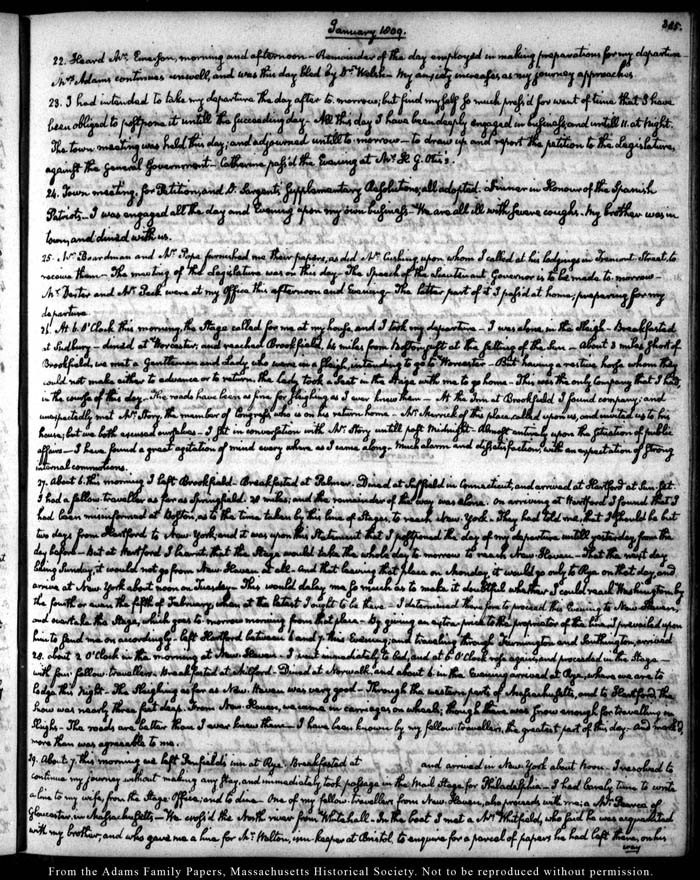 January 1809.
325.
22. Heard Mr. Emerson, morning and afternoon – Remainder of the day employed in making preparations for my departure
Mrs. Adams continues unwell, and was this day bled by Dr. Welsh – My anxiety increases, as my journey approaches
23. I had intended to take my departure the day after to-morrow, but find myself so much press'd for want of time that I have
been obliged to postpone it untill the succeeding day – All this day I have been deeply engaged in business, and untill 11. at Night.
The town meeting was held this day; and adjourned untill to-morrow – to draw up and report the petition to the Legislature,
against the General Government – Catherine pass'd the Evening at Mr. H. G. Otis's.
24. Town meeting, for Petition, and D. Sargent's Supplementary Resolutions, all adopted. Dinner in Honour of the Spanish
Patriots – I was engaged all the day and Evening upon my own business – We are all ill with severe coughs. My brother was in
town, and dined with us.
25. Mr. Boardman and Mr. Pope furnished me their papers, as did Mr. Cushing upon whom I called at his lodgings in Tremont Street, to
receive them – The meeting of the Legislature was on this day – The Speech of the Lieutenant Governor is to be made to-morrow –
Mr. Dexter and Mr. Peck were at my Office this afternoon and Evening – The latter part of it I pass'd at home, preparing for my
departure.
26. At 6. O'Clock this morning, the Stage called for me at my house, and I took my departure – I was alone in the Sleigh – Breakfasted
at Sudbury – dined at Worcester, and reached Brookfield, 64 miles from Boston, just at the setting of the Sun – About 3 miles short of
Brookfield, we met a Gentleman and Lady, who were in a sleigh, intending to go to Worcester – But having a restive horse whom they
could not make either to advance or to return, the Lady took a Seat in the Stage with me to go home – This was the only Company that I had,
in the course of this day – The roads have been as fine for Sleighing as I ever knew them – At the Inn at Brookfield I found company; and
unexpectedly met Mr. Story, the member of Congress who is on his return home – Mr. Merrick of this place, called upon us, and invited us to his
house; but we both excused ourselves – I sat in conversation with Mr. Story untill past Midnight – Almost entirely upon the situation of public
affairs – I have found a great agitation of mind every where as I came along – Much alarm and dissatisfaction, with an expectation of strong
internal commotions.
27. About 6. this morning I left Brookfield – Breakfasted at Palmer. Dined at Suffield in Connecticut, and arrived at Hartford at Sun-set.
I had a fellow traveller as far as Springfield. 28 miles; and the remainder of the way was alone. On arriving at Hartford I found that I
had been misinformed at Boston, as to the time taken by this line of Stages, to reach New-York. They had told me, that I should be but
two days from Hartford to New York; and it was upon this statement that I postponed the day of my departure untill yesterday, from the
day before – But at Hartford I learnt, that the Stage would take the whole day to-morrow to reach New-Haven – That the next day
being Sunday, it would not go from New Haven at all – And that leaving that place on Monday, it would go only to Rye on that day, and
arrive at New York about noon on Tuesday – This would delay me so much as to make it doubtful whether I could reach Washington by
the fourth or even the fifth of February, when at the latest I ought to be there – I determined therefore to proceed this Evening to New-Haven,
and overtake the Stage, which goes to-morrow morning from that place – By giving an extra price to the proprietor of the line I prevailed upon
him to send me on accordingly – left Hartford between 6 and 7 this Evening; and traveling through Farmington and Southington, arrived
28. about 2 O'Clock in the morning at New Haven – I went immediately to bed, and at 6 O'Clock rose again, and proceeded in the Stage –
with four fellow-travellers – Breakfasted at Milford – Dined at Norwalk and about 6 in the Evening arrived at Rye, where we are to
lodge this Night – The Sleighing as far as New-Haven was very good – Through the western parts of Massachusetts, and to Hartford, the
snow was nearly three feet deep. From New Haven, we came in carriages on wheels; though there was snow enough for travelling on
Sleighs – The roads are better than I ever knew them – I have been known by my fellow-travellers, the greatest part of this day – And
more than was agreeable to me.
29. About 7, this morning we left Penfield's inn at Rye. Breakfasted at and arrived in New York about Noon – I resolved to
continue my journey without making any stay, and immediately took passage in the Mail Stage for Philadelphia – I had barely time to write
a line to my wife, from the Stage Office; and to dine – One of my fellow-travellers from New Haven, also proceeds with me; a Mr. Pearce of
Gloucester, in Massachusetts – We cross'd the North river from Whitehall – In the boat I met a Mr. Whitfield, who said he was acquainted
with my brother; and who gave me a line for Mr. Walton, inn-keeper at Bristol, to enquire for a parcel of papers he had left there, on his
way
From the Adams Family Papers, Massachusetts Historical Society. Not to be reproduced without permission.